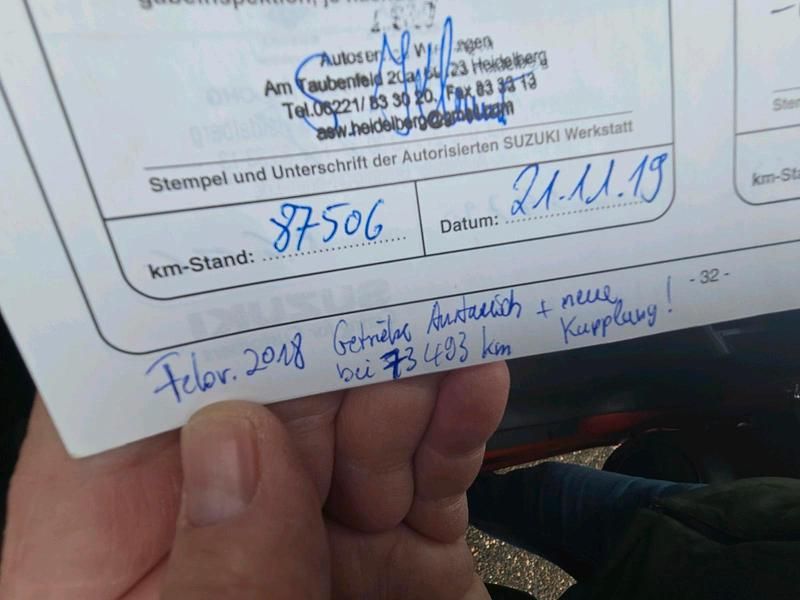 Am Taubenfeld 23 Heidelberg
Tel.06221/ 83 30 20, Fax 83 33 13
asw.heidelberg@gmx
Stempel und Unterschrift der Autorisierten SUZUKI Werkstatt
km-Stand: 87506
Datum: 21.11.19
km-Sta
- 32 -
Febr. 2018 Getriebe Austausch + neue Kupplung!
bei 73 493 km